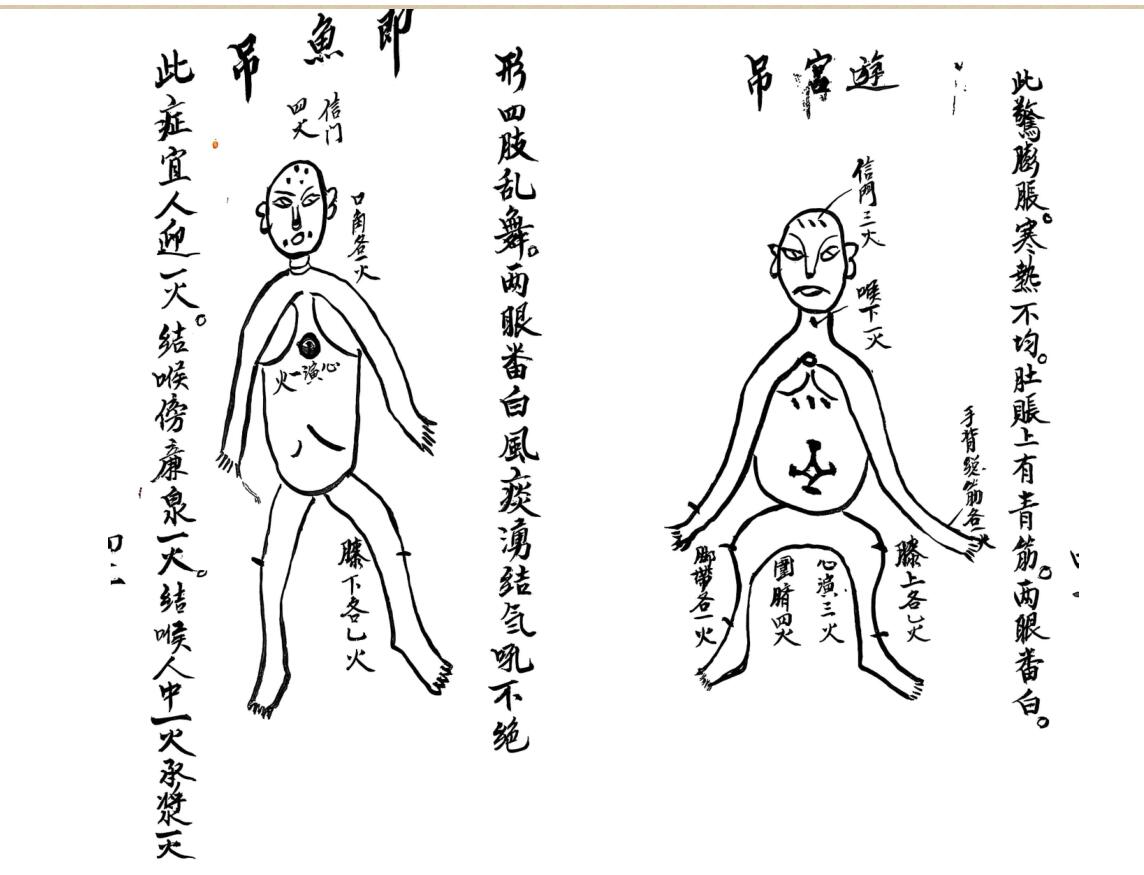 此驚膨脹。寒熱不均。肚賬上有青筋。两眼番白。
遊宫吊
信門三火
喉下一火
手背總筋各一火
膝上各乚火
心演三火
圍臍四火
脚帶各一火
形四肢乱舞。两眼番白風痰湧结气吼不绝
即魚吊
信门四火
口角各一火
心演一火
膝下各乚火
此症宜人迎一火。结喉傍廉泉一火。结喉人中一火承漿一火